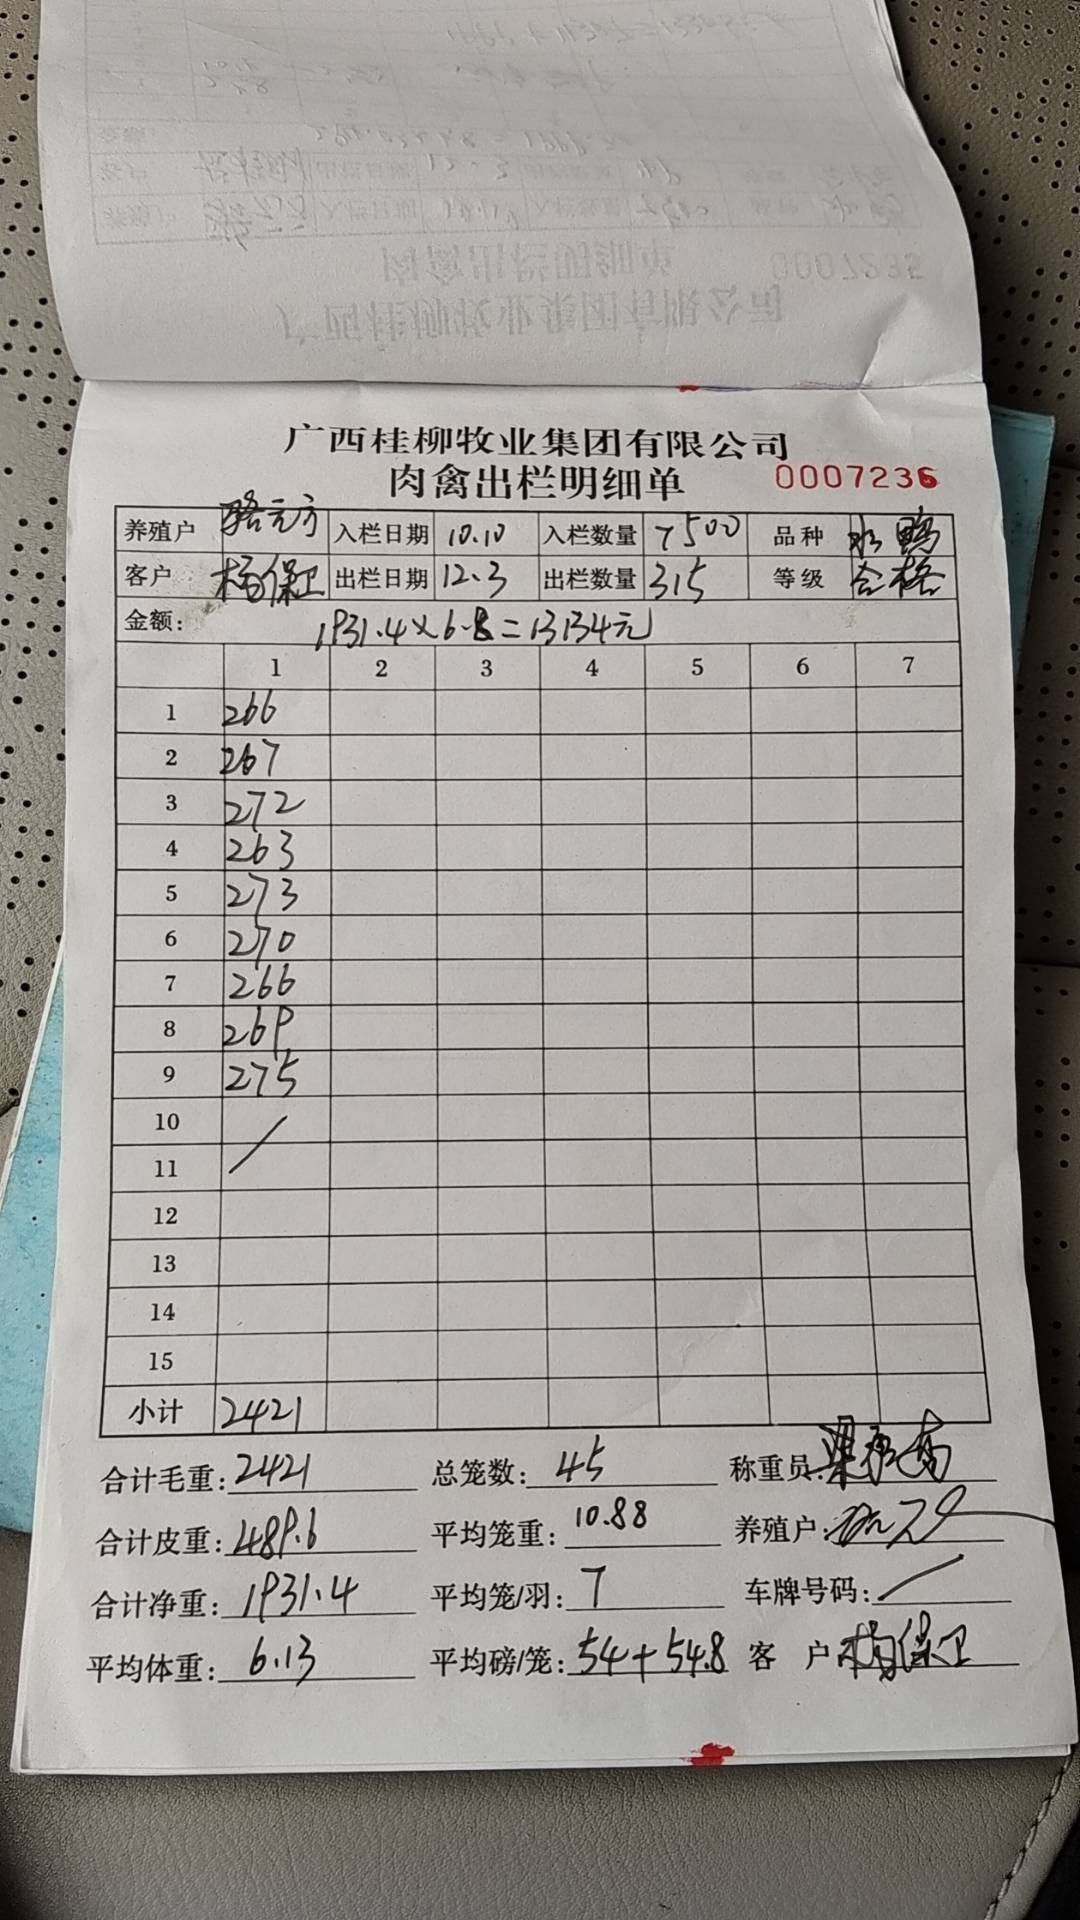 广西桂柳牧业集团有限公司
肉禽出栏明细单 0007236
养殖户 骆元方 入栏日期 10.10 入栏数量 7500 品种 水鸭
客户 杨保卫 出栏日期 12.3 出栏数量 315 等级 合格
金额: 1931.4×6.8=13134元
1 2 3 4 5 6 7
1 266
2 267
3 272
4 263
5 273
6 270
7 266
8 269
9 275
10
11
12
13
14
15
小计 2421
合计毛重: 2421 总笼数: 45 称重员:
合计皮重: 489.6 平均笼重: 10.88 养殖户:
合计净重: 1931.4 平均笼/羽: 7 车牌号码:
平均体重: 6.13 平均磅/笼: 54+54.8 客户 杨保卫